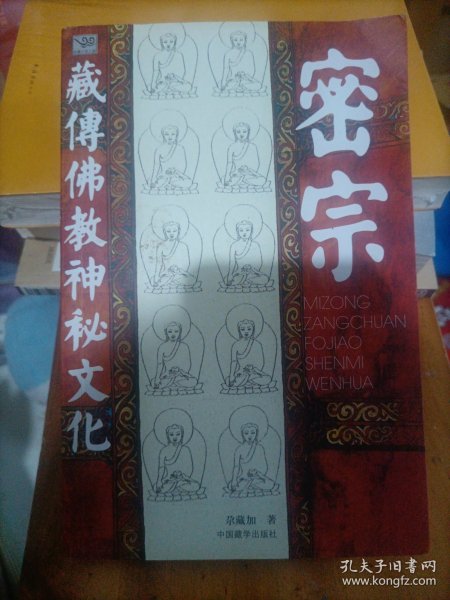 密宗
藏傳佛教神秘文化
MIZONG
ZANGCHUAN
FOJIAO
SHENMI
WENHUA
尕藏加 著
中国藏学出版社
孔夫子旧书网
www.kongfz.com